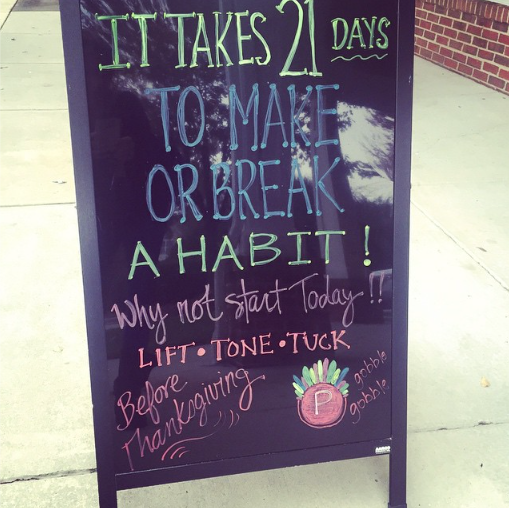 IT TAKES 21 DAYS
TO MAKE
OR BREAK
A HABIT!
Why not start Today!!
LIFT • TONE • TUCK
Before
Thanksgiving
P
gobble
gobble